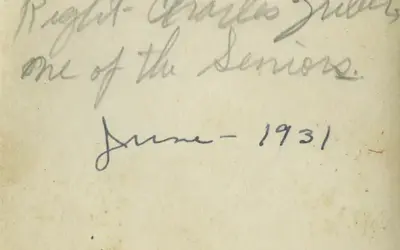 Right - Charles
one of the Seniors.
June - 1931